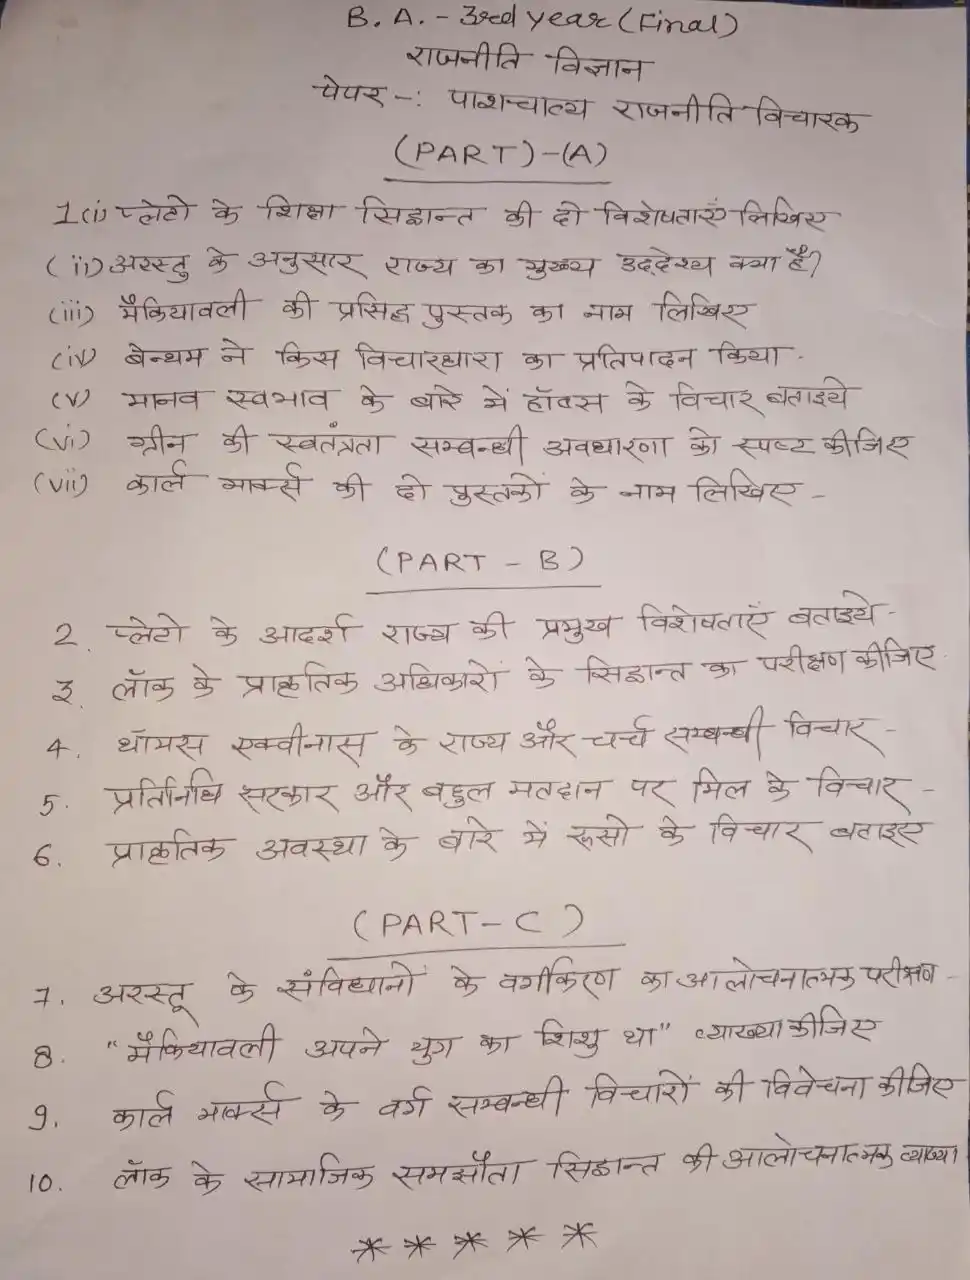 B. A. - 3rd year (Final)
राजनीति विज्ञान
पेपर -: पाशचात्य राजनीति विचारक
(PART)-(A)
1(i) प्लेटो के शिक्षा सिद्वान्त की दो विशेषताएँ लिखिए
(ii) अरस्तु के अनुसार राज्य का मुख्य उददेश्य क्या है?
(iii) मैकियावली की प्रसिद्व पुस्तक का नाम लिखिए
(iv) बेन्थम ने किस विचारधारा का प्रतिपादन किया.
(v) मानव स्वभाव के बारे में हॉब्स के विचार बताइये
(vi) ग्रीन की स्वतंत्रता सम्बन्धी अवधारणा को स्पष्ट कीजिए
(vii) कार्ल मार्क्स की दो पुस्तकों के नाम लिखिए -
(PART - B)
2. प्लेटो के आदर्श राज्य की प्रमुख विशेषताएँ बताइये -
3. लॉक के प्राकृतिक अधिकारों के सिद्वान्त का परीक्षण कीजिए.
4. थॉमस एक्वीनास के राज्य और चर्च सम्बन्धी विचार -
5. प्रतिनिधि सरकार और बहुल मतदान पर मिल के विचार -
6. प्राकृतिक अवस्था के बारे में रूसो के विचार बताइए
(PART- C)
7. अरस्तू के संविधानों के वर्गीकरण का आलोचनात्मक परीक्षण -
8. "मैकियावली अपने युग का शिशु था" व्याख्या कीजिए
9. कार्ल मार्क्स के वर्ग सम्बन्धी विचारों की विवेचना कीजिए
10. लॉक के सामाजिक समझौता सिद्वान्त की आलोचनात्मक व्याख्या
* * * * *